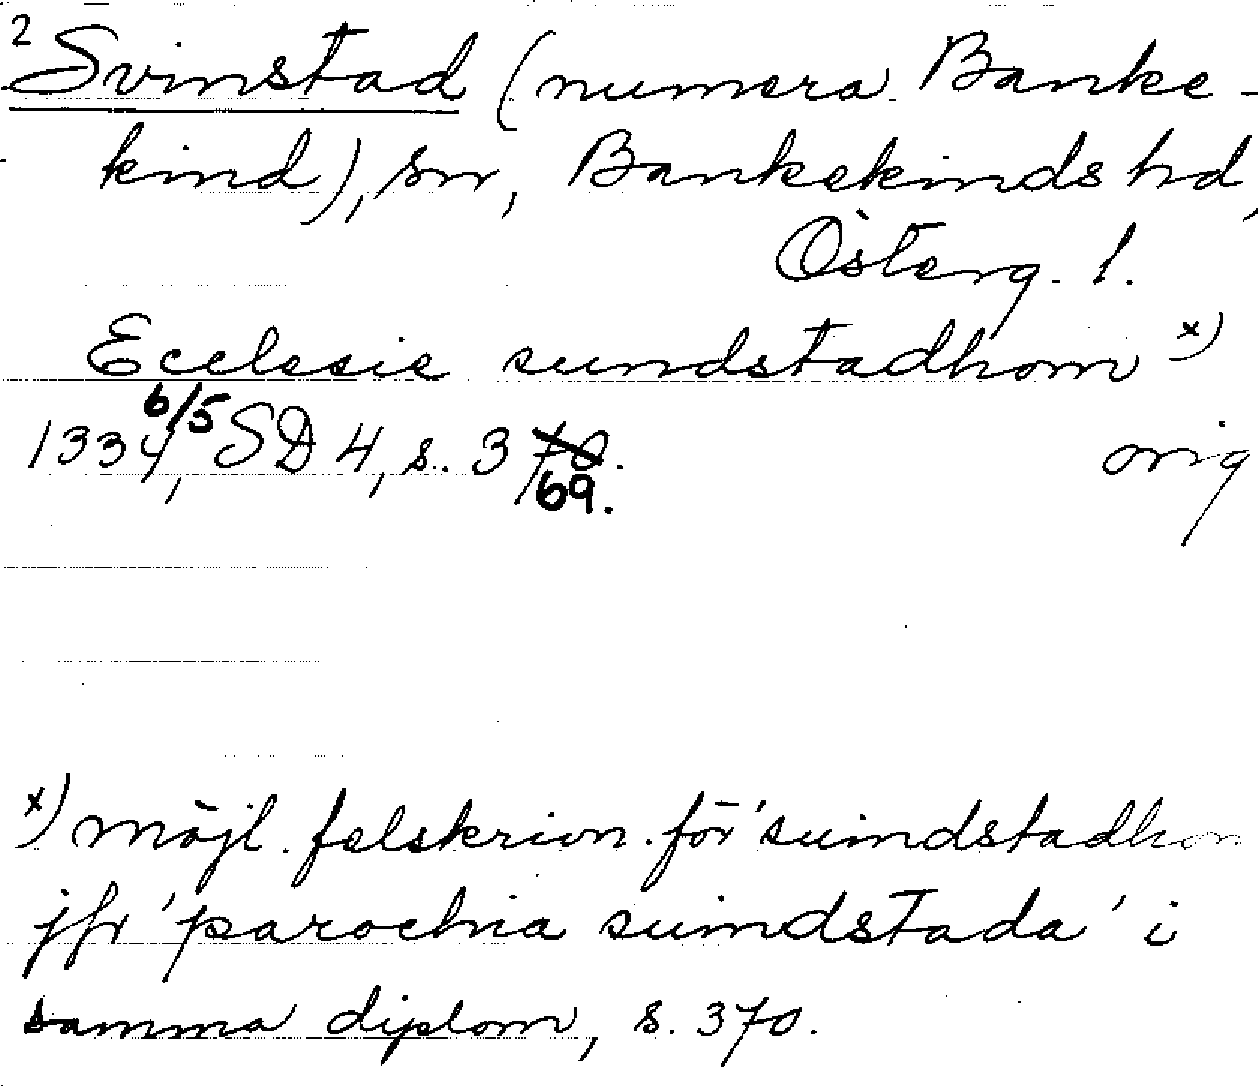 2 Svinstad (numera Banke-
kind), sn, Bankekinds hd,
Österg. l.
Ecclesie sundstadhom x)
1334 6/5, SD 4, s. 369. orig
x) möjl. felskrivn. för 'suindstadhom
jfr 'parochia suindstada' i
samma diplom, s. 370.